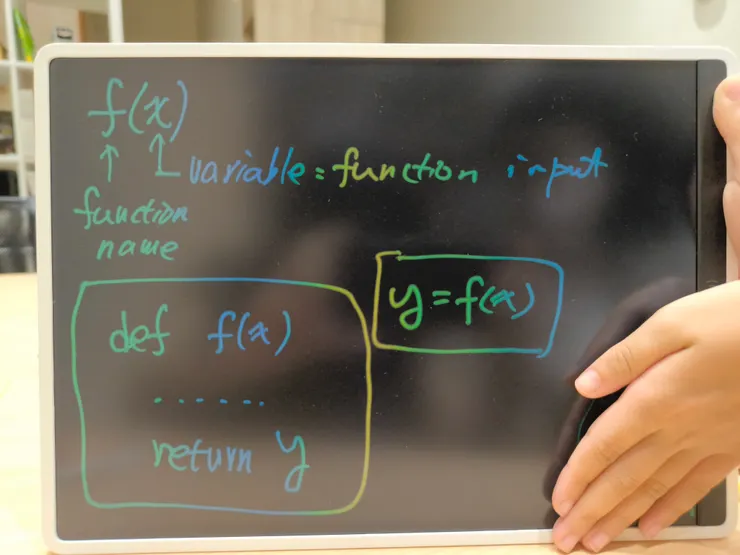 f(x)
variable = function input
function
name
y = f(x)
def f(x)
......
return y